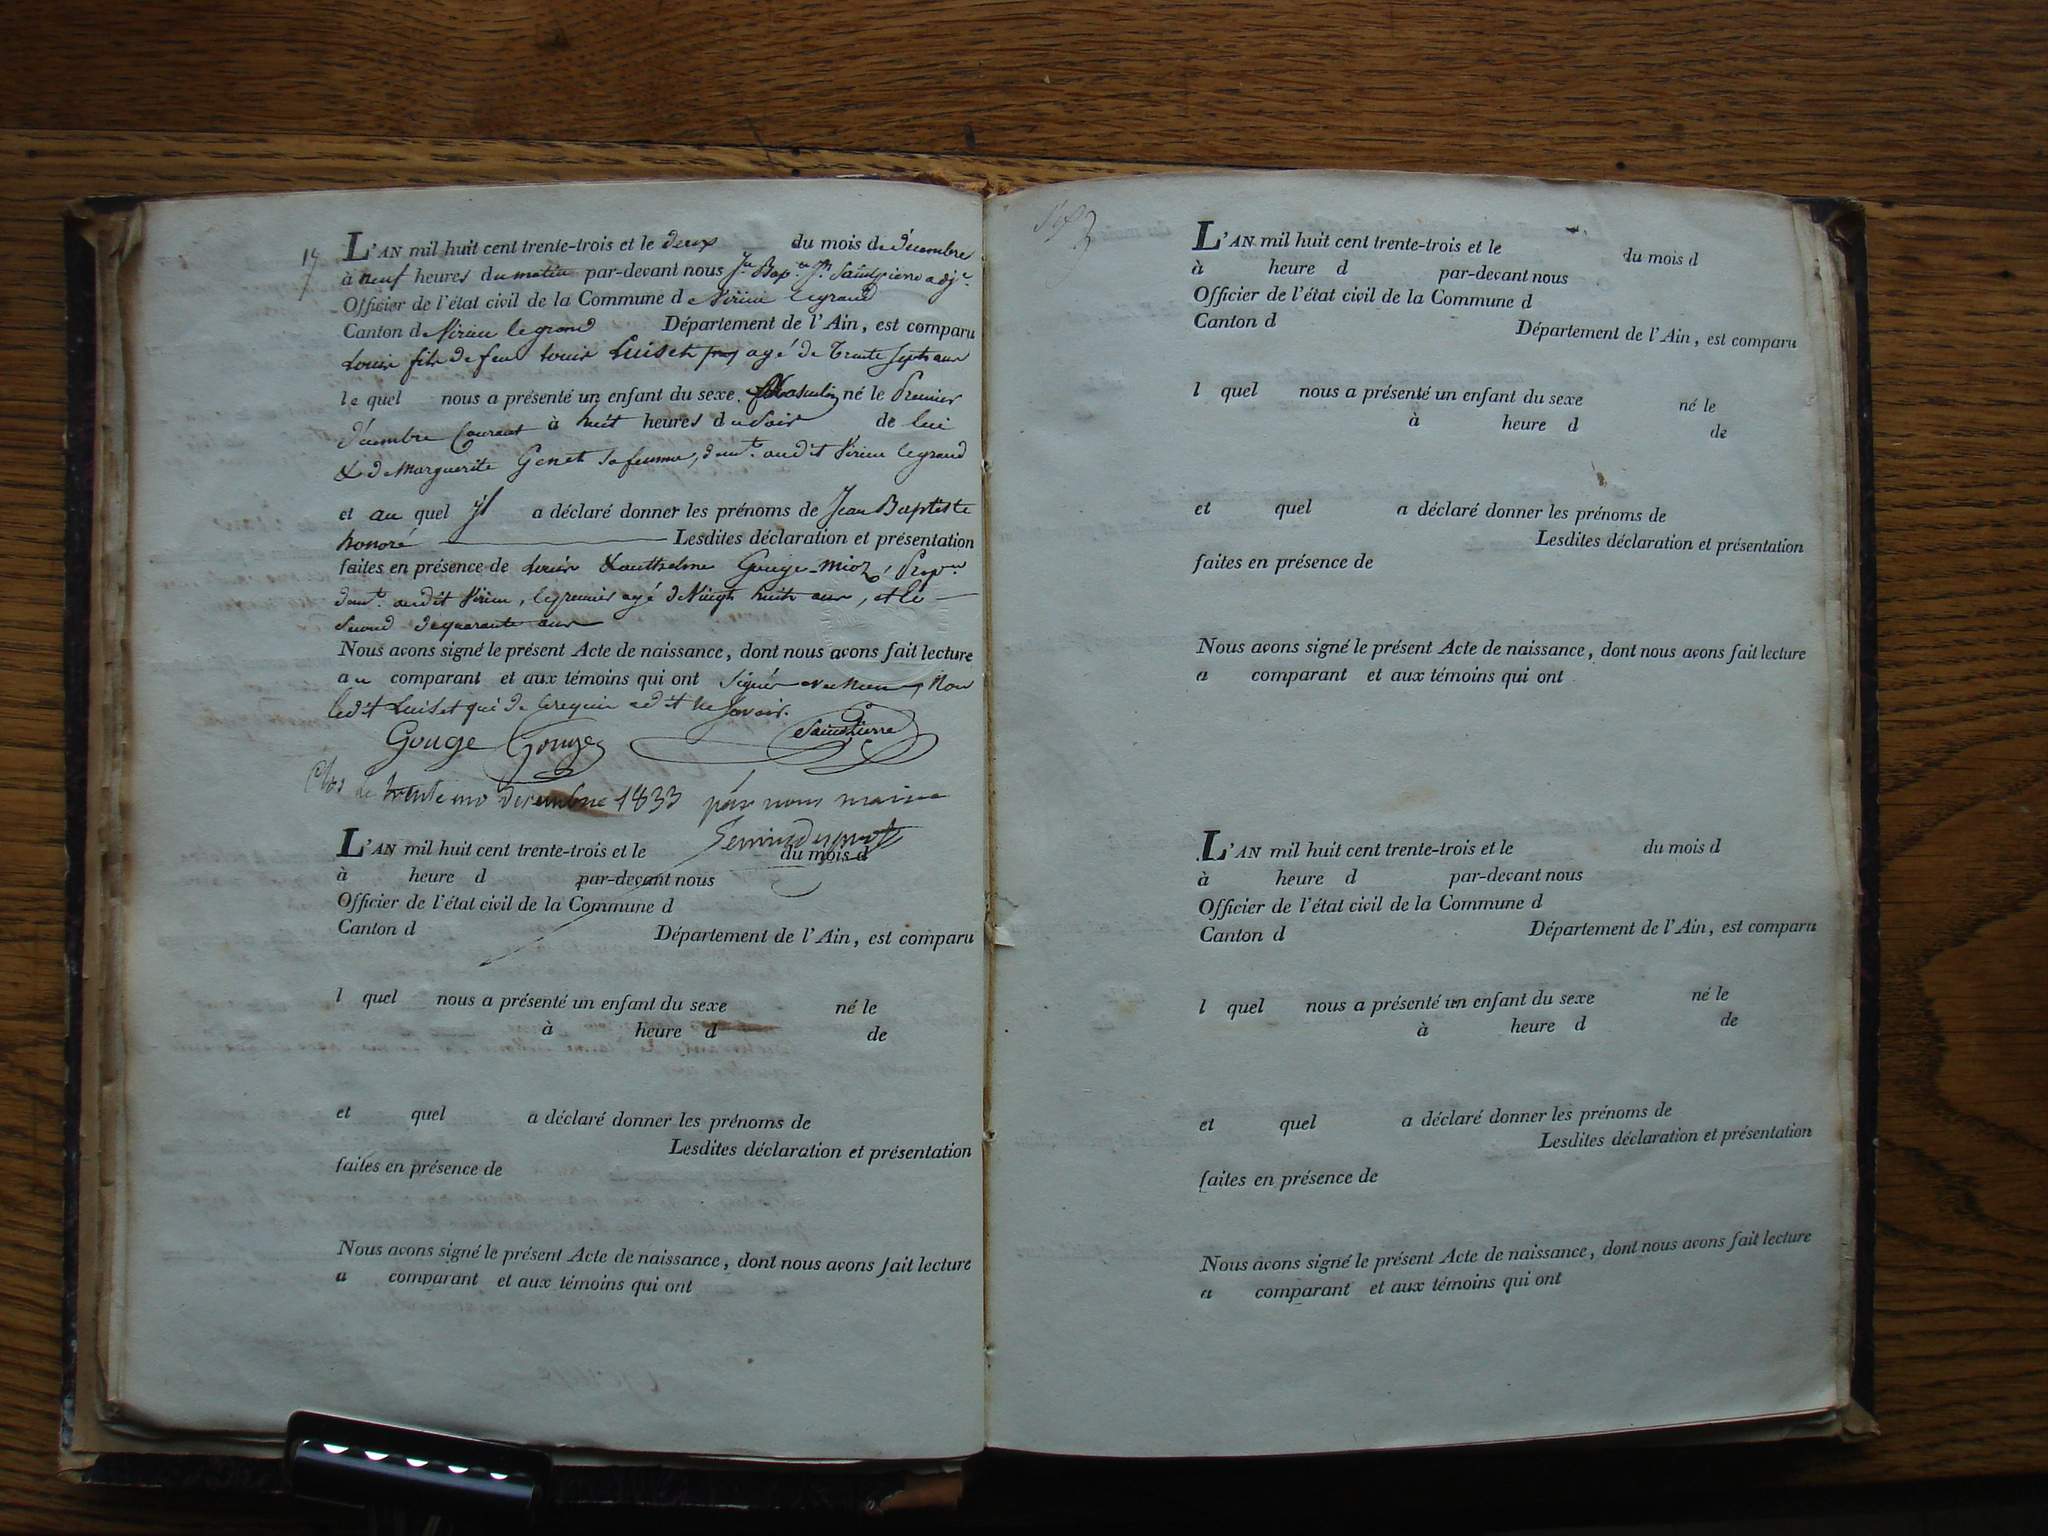 17
L'AN mil huit cent trente-trois et le deux du mois de décembre
à neuf heures du matin par-devant nous Jn Bap.te Jh Saintpierre adj.t
Officier de l'état civil de la Commune d Virieu legrand
Canton de Virieu legrand Département de l'Ain, est comparu
Louis fils de feu Louis Luiset agé de Trente sept ans
le quel nous a présenté un enfant du sexe Masculin né le Premier
décembre Courant à huit heures du soir de lui
& de Marguerite Genet sa femme, dem.t audit Virieu legrand
et au quel il a déclaré donner les prénoms de Jean Baptiste
honoré Lesdites déclaration et présentation
faites en présence de Louis & anthelme Gouge-mioz, Prop.res
dem.t audit Virieu, le premier agé de Vingt huit ans, et le
second de quarante ans
Nous avons signé le présent Acte de naissance, dont nous avons fait lecture
au comparant et aux témoins qui ont signés avec nous, Non
ledit Luiset qui de ce requis a dit ne savoir.
Gouge Gouge Saintpierre
Clos le trente un decembre 1833 par nous maire
L'AN mil huit cent trente-trois et le du mois d
à heure d par-devant nous
Officier de l'état civil de la Commune d
Canton d Département de l'Ain, est comparu
l quel nous a présenté un enfant du sexe né le
à heure d de
et quel a déclaré donner les prénoms de
Lesdites déclaration et présentation
faites en présence de
Nous avons signé le présent Acte de naissance, dont nous avons fait lecture
a comparant et aux témoins qui ont
L'AN mil huit cent trente-trois et le du mois d
à heure d par-devant nous
Officier de l'état civil de la Commune d
Canton d Département de l'Ain, est comparu
l quel nous a présenté un enfant du sexe né le
à heure d de
et quel a déclaré donner les prénoms de
Lesdites déclaration et présentation
faites en présence de
Nous avons signé le présent Acte de naissance, dont nous avons fait lecture
a comparant et aux témoins qui ont
L'AN mil huit cent trente-trois et le du mois d
à heure d par-devant nous
Officier de l'état civil de la Commune d
Canton d Département de l'Ain, est comparu
l quel nous a présenté un enfant du sexe né le
à heure d de
et quel a déclaré donner les prénoms de
Lesdites déclaration et présentation
faites en présence de
Nous avons signé le présent Acte de naissance, dont nous avons fait lecture
a comparant et aux témoins qui ont